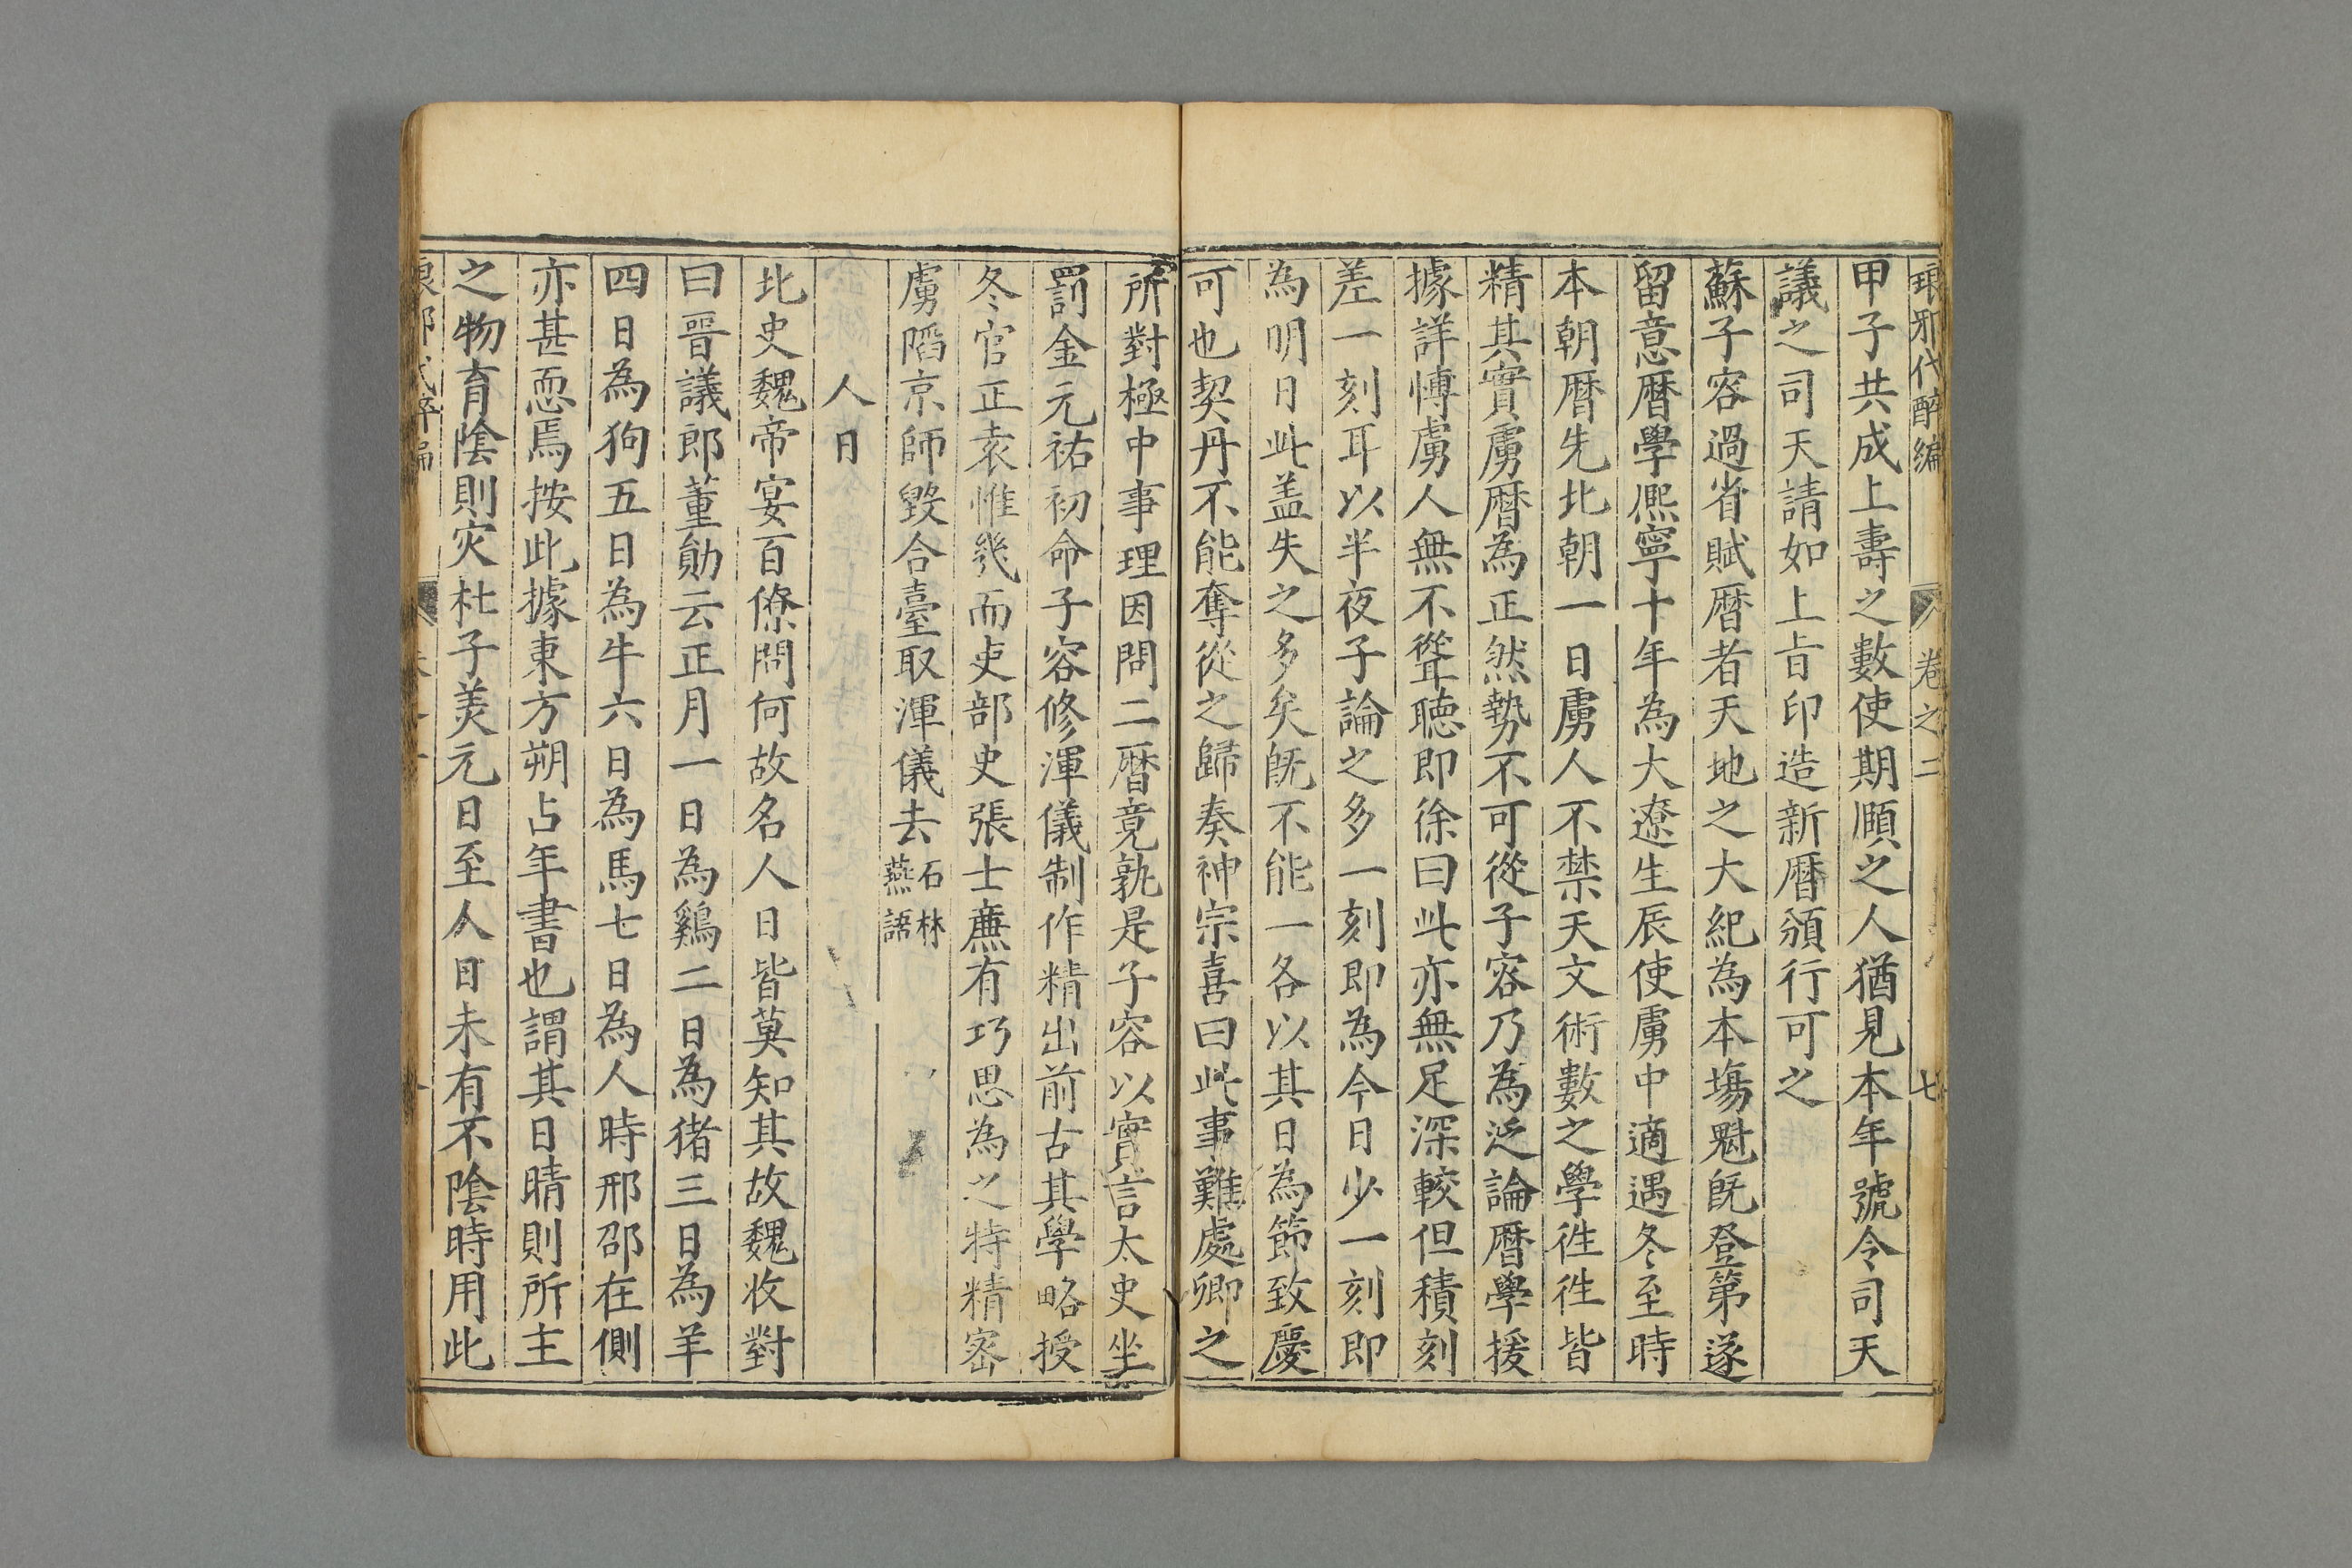 琅邪代醉編 卷之二 七
甲子共成上壽之數使期頥之人猶見本年號令司天
議之司天請如上㫖印造新暦頒行可之
蘇子容過省賦暦者天地之大紀為本塲魁旣登第遂
留意暦學熈寧十年為大遼生辰使虜中適遇冬至時
本朝暦先北朝一日虜人不禁天文術數之學徃徃皆
精其實虜暦為正然勢不可從子容乃為泛論暦學援
據詳慱虜人無不聳聴即徐曰此亦無足深較但積刻
差一刻耳以半夜子論之多一刻即為今日少一刻即
為明日此盖失之多矣旣不能一各以其日為節致慶
可也契丹不能奪從之歸奏神宗喜曰此事難處卿之
所對極中事理因問二暦竟孰是子容以實言太史坐
罰金元祐初命子容修渾儀制作精出前古其學略授
冬官正袁惟幾而吏部史張士㢘有巧思為之特精宻
虜䧟京師毀合臺取渾儀去 石林燕語
人日
北史魏帝宴百僚問何故名人日皆莫知其故魏收對
曰晉議郎董勛云正月一日為鷄二日為猪三日為羊
四日為狗五日為牛六日為馬七日為人時邢邵在側
亦甚恧焉按此據東方朔占年書也謂其日晴則所主
之物育隂則灾杜子美元日至人日未有不隂時用此